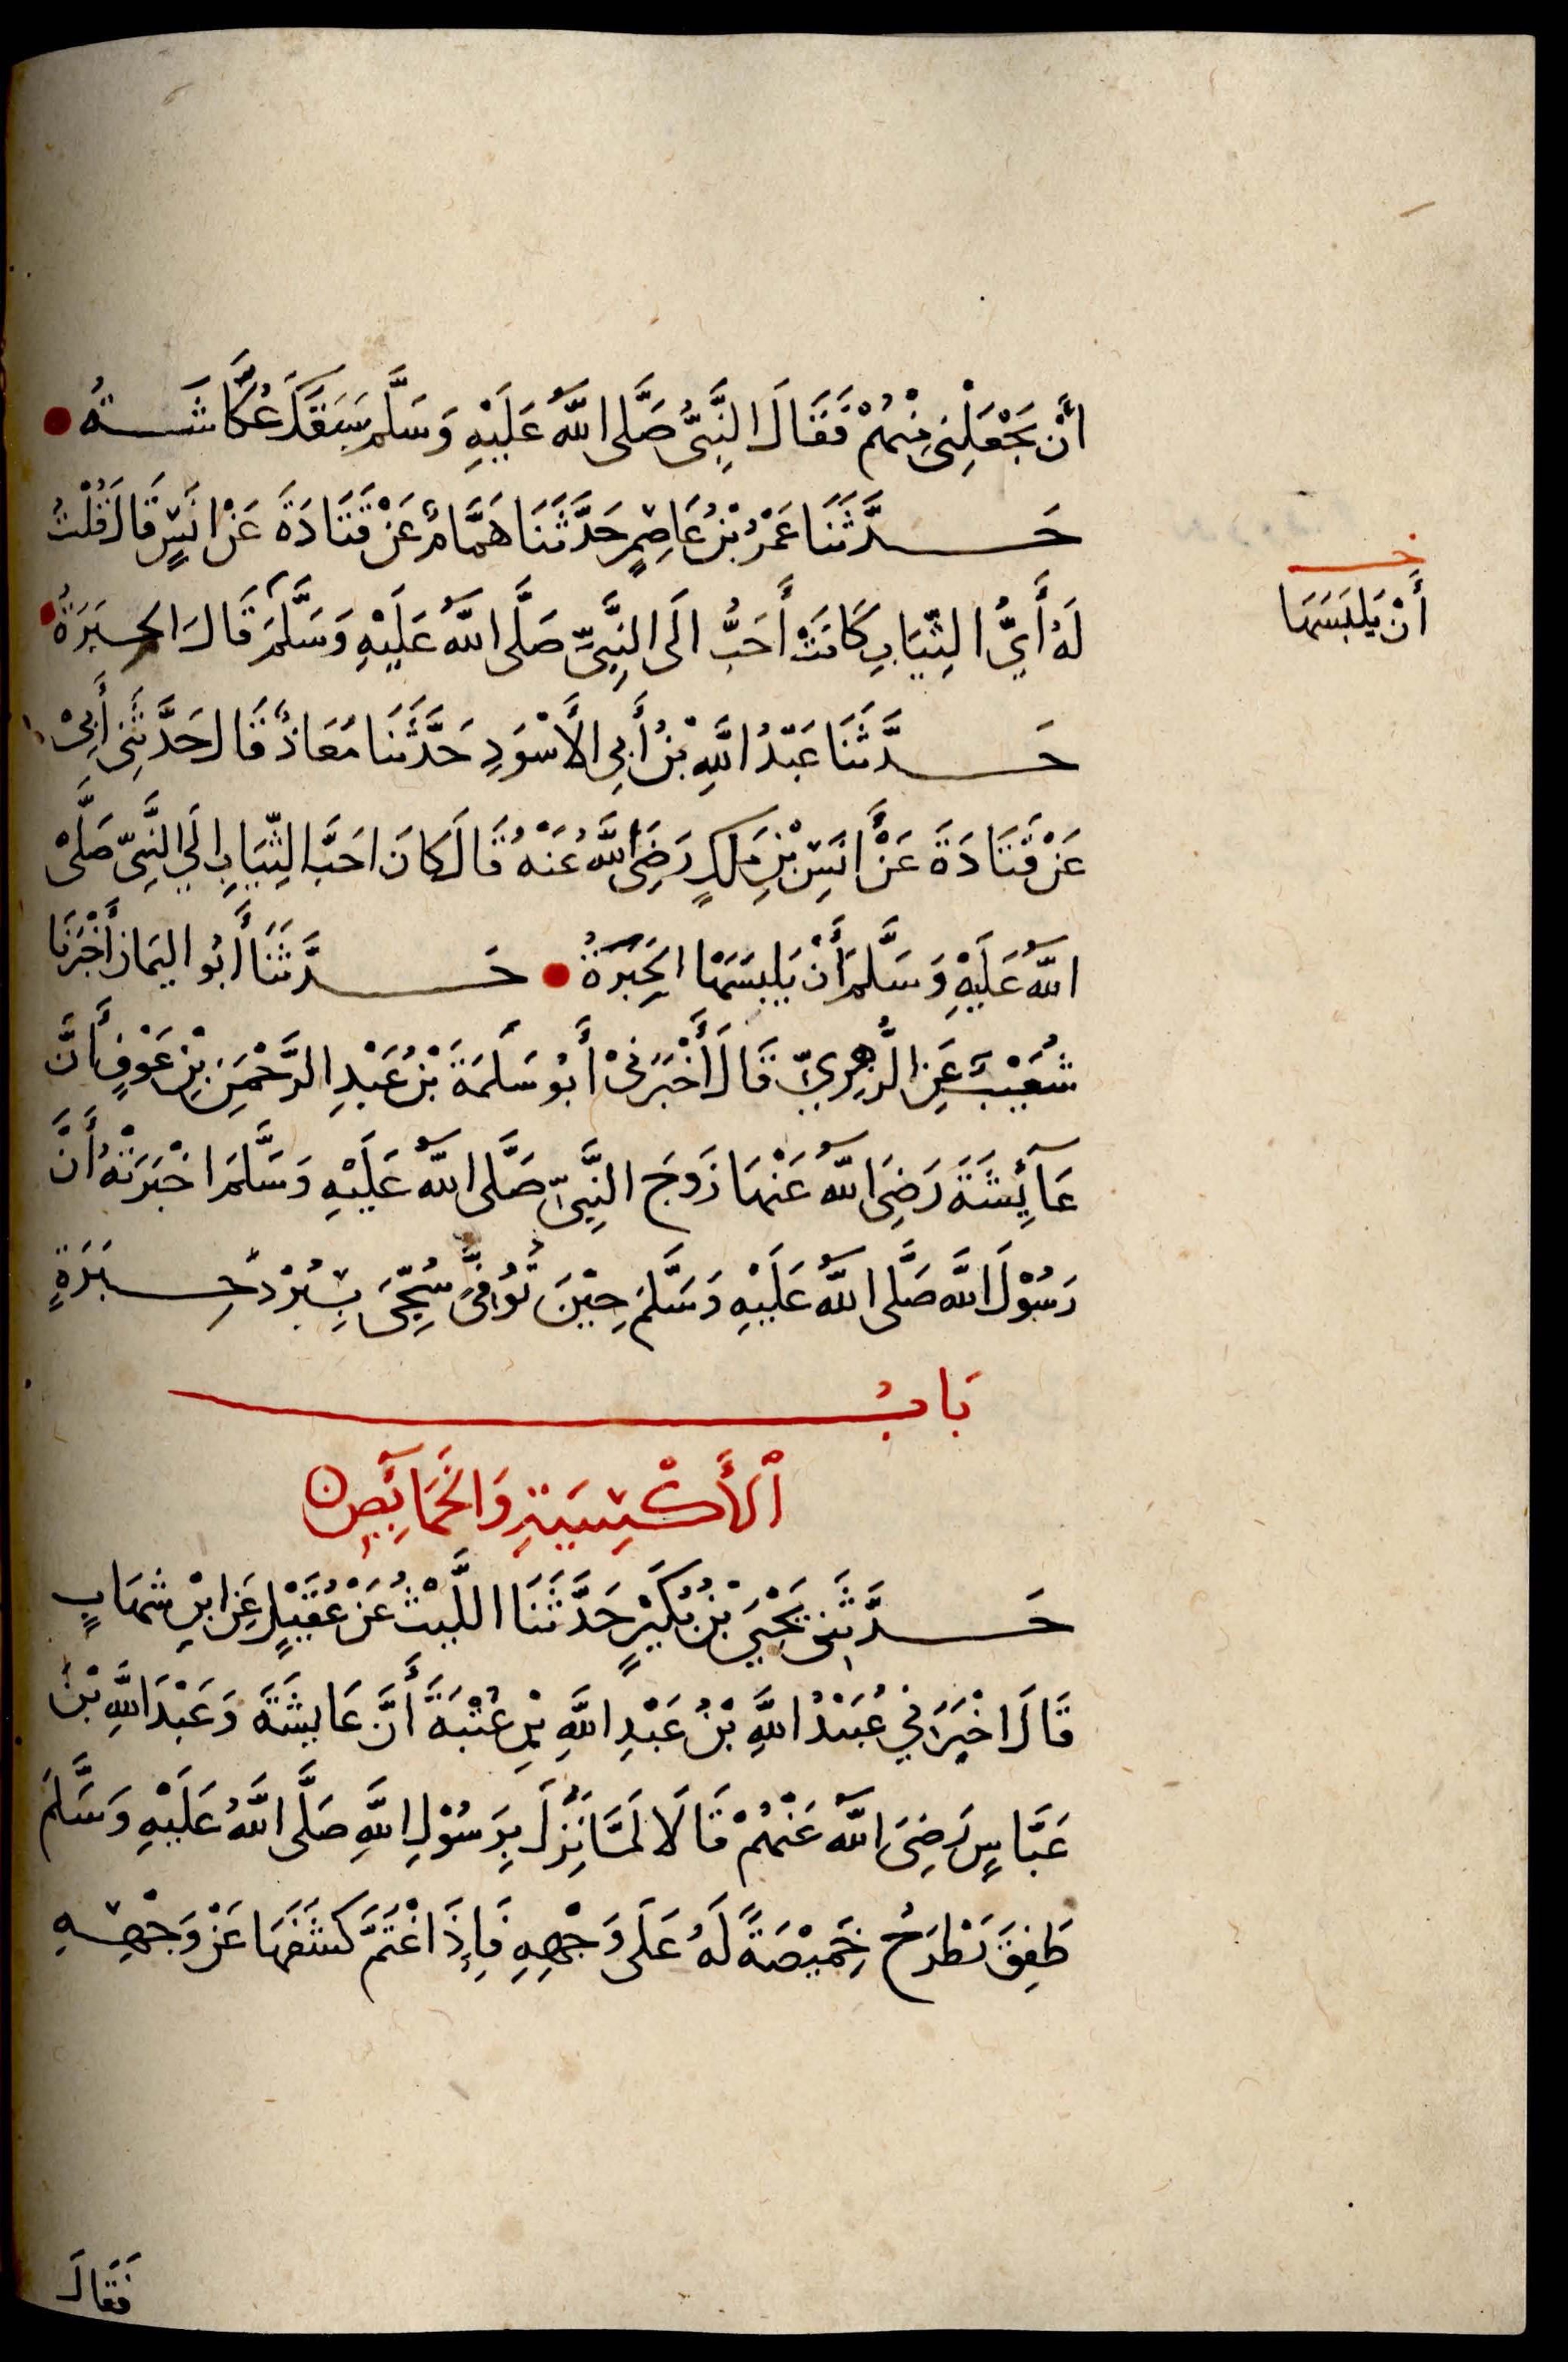 اَنْ يَجْعَلَنِى مِنْهُمْ فَقَالَ النَّبِىُّ صَلَّى اللّٰهُ عَلَيْهِ وَسَلَّمَ سَبَقَكَ عُكَّاشَةُ
حَدَّثَنَا عَمْرُ بْنُ عَاصِمٍ حَدَّثَنَا هَمَّامٌ عَنْ قَتَادَةَ عَنْ اَنَسٍ قَالَ قُلْتُ
لَهُ أَيُّ الثِّيَابِ كَانَتْ أَحَبُّ الَى النَّبِىِّ صَلَّى اللّٰهُ عَلَيْهِ وَسَلَّمَ قَالَ الحِبَرَةُ
حَدَّثَنَا عَبْدُ اللّٰهِ بْنُ أَبِى الأَسْوَدِ حَدَّثَنَا مُعَاذٌ قَالَ حَدَّثَنِى أَبِىْ
عَنْ قَتَادَةَ عَنْ أَنَسِ بْنِ مٰلِكٍ رَضِىَ اللّٰهُ عَنْهُ قَالَ كَانَ احَبَّ الثِّيَابِ الَي النَّبِىِّ صَلَّىْ
اللّٰهُ عَلَيْهِ وَسَلَّمَ أَنْ يَلْبِسَهَا الحِبَرَةُ حَدَّثَنَا أَبُو اليَمَانِ أَخْبَرَنَا
شُعَيْبٌ عَنِ الزُّهْرِيِّ قَالَ أَخْبَرَنِىْ أَبُو سَلَمَةَ بْنُ عَبْدِ الرَّحْمٰنِ بْنِ عَوْفٍ أَنَّ
عَآئِشَةَ رَضِىَ اللّٰهُ عَنْهَا زَوجَ النَّبِىِّ صَلَّى اللّٰهُ عَلَيْهِ وَسَلَّمَ اخْبَرَتْهُ أَنَّ
رَسُوْلَ اللّٰهِ صَلَّى اللّٰهُ عَلَيْهِ وَسَلَّمَ حِيْنَ تُوُفِّىَ سُجِّىَ بِبُرْدٍ حِبَرَةٍ
بَابُ
اْلأَكْسِيَةِ وَالخَمَآئِصِ
حَدَّثَنِى يَحْيَ بْنُ بُكَيْرٍ حَدَّثَنَا اللَّيْثُ عَنْ عُقَيْلٍ عَنِ ابْنِ شِهَابٍ
قَالَ اخْبَرَنِي عُبَيْدُ اللّٰهِ بْنُ عَبْدِ اللّٰهِ بْنِ عُتْبَةَ أَنَّ عَايِشَةَ وَعَبْدَ اللّٰهِ بْنَ
عَبَّاسٍ رَضِىَ اللّٰهُ عَنْهُمْ قَالَا لَمَّا نُزِلَ بِرَسُوْلِ اللّٰهِ صَلَّى اللّٰهُ عَلَيْهِ وَسَلَّمَ
طَفِقَ يَطْرَحُ خَمِيْصَةً لَهُ عَلَى وَجْهِهِ فَإِذَا اغْتَمَّ كَشَفَهَا عَنْ وَجْهِهِ
فَقَالَ
خـ
أَنْ يَلبَسَهَا